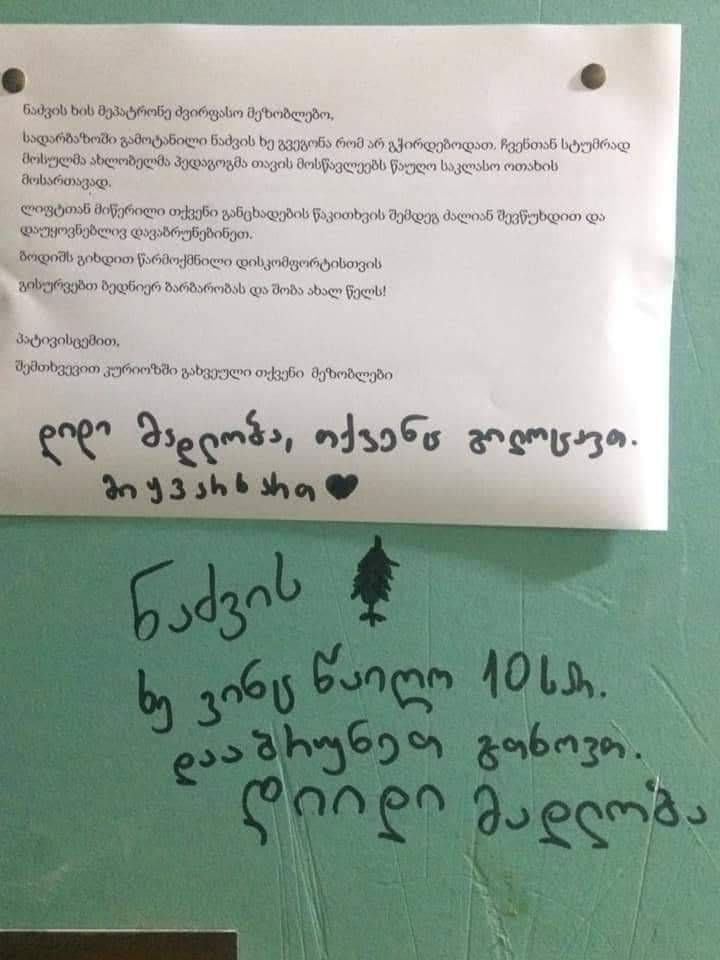 ნაძვის ხის მეპატრონე ძვირფასო მეზობლებო,
სადარბაზოში გამოტანილი ნაძვის ხე გვეგონა რომ არ გჭირდებოდათ. ჩვენთან სტუმრად
მოსულმა ახლობელმა პედაგოგმა თავის მოსწავლეებს წაუღო საკლასო ოთახის
მოსართავად.
ლიფტთან მიწერილი თქვენი განცხადების წაკითხვის შემდეგ ძალიან შევწუხდით და
დაუყოვნებლივ დავაბრუნებინეთ.
ბოდიშს გიხდით წარმოქმნილი დისკომფორტისთვის
გისურვებთ ბედნიერ ბარბარობას და შობა ახალ წელს!
პატივისცემით,
შემთხვევით კურიოზში გახვეული თქვენი მეზობლები
დიდი მადლობა, თქვენც გილოცავთ.
მიყვარხართ
ნაძვის
ხე ვინც წაიღო 10 სარ.
დააბრუნეთ გთხოვთ.
დიიდი მადლობა